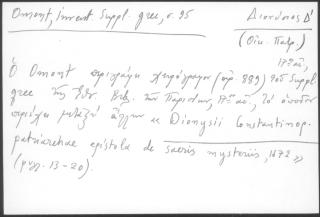 Omont, invent. Suppl. grec, σ. 95
Διονύσιος Δ'
(Οἰκ. Πατρ.)
17ος αἰ.
Ὁ Omont περιγράφει χειρόγραφον (ἀρ. 889) τοῦ Suppl.
grec τῆς Ἐθν. Βιβ. τῶν Παρισίων, 17ου αἰ., τὸ ὁποῖον
περιέχει μεταξὺ ἄλλων « Dionysii Constantinop.
patriarchae epistola de sacris mysteriis, 1672 »
(φύλ. 13-20).